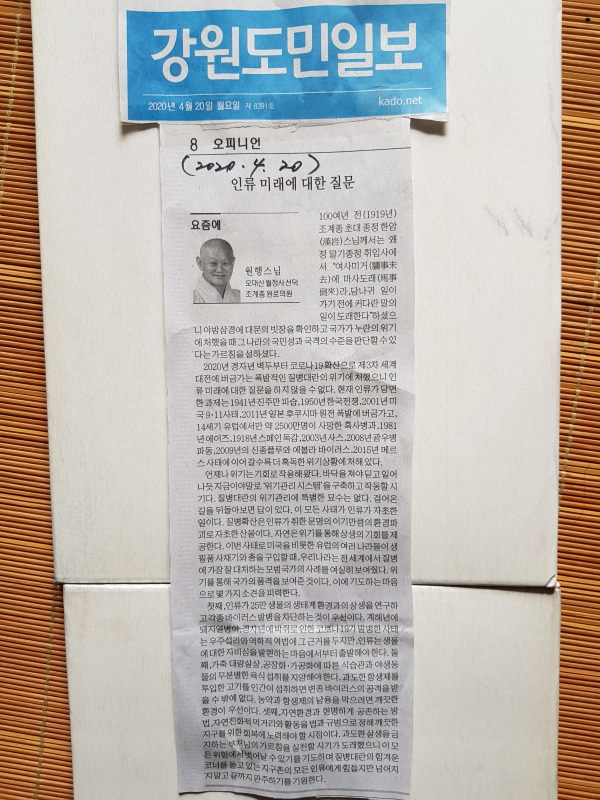 강원도민일보
2020년 4월 20일 월요일 제 8391호
kado.net
8 오피니언
(2020. 4. 20)
인류 미래에 대한 질문
요즘에
원행스님
오대산 월정사 선덕
조계종 원로의원
100여년 전(1919년)
조계종 초대 종정 한암
(漢岩)스님께서는 왜
정 말기 종정 취임사에
서 “여사미거(驢事未
去)에 마사도래(馬事
倒來)라, 당나귀 일이
가기 전에 커다란 말의
일이 도래한다”하셨으
니 야밤삼경에 대문의 빗장을 확인하고 국가가 누란의 위기
에 처했을 때 그 나라의 국민성과 국격의 수준을 판단할 수 있
다는 가르침을 설하셨다.
2020년 경자년 벽두부터 코로나19 확산으로 제3차 세계
대전에 버금가는 폭발적인 질병대란의 위기에 처했으니 인
류 미래에 대한 질문을 하지 않을 수 없다. 현재 인류가 당면
한 과제는 1941년 진주만 피습, 1950년 한국전쟁, 2001년 미
국 9·11사태, 2011년 일본 후쿠시마 원전 폭발에 버금가고,
14세기 유럽에서만 약 2500만명이 사망한 흑사병과, 1981
년 에이즈, 1918년 스페인 독감, 2003년 사스, 2008년 광우병
파동, 2009년의 신종플루와 에볼라 바이러스, 2015년 메르
스 사태에 이어 갈수록 더 혹독한 위기상황에 처해 있다.
언제나 위기는 기회로 작용해 왔다. 바닥을 쳐야 딛고 일어
나듯 지금이야말로 ‘위기관리 시스템’을 구축하고 작동할 시
기다. 질병대란의 위기관리에 특별한 묘수는 없다. 걸어온
길을 뒤돌아보면 답이 있다. 이 모든 사태가 인류가 자초한
일이다. 질병확산은 인류가 취한 문명의 이기만큼의 환경파
괴로 자초한 산물이다. 자연은 위기를 통해 상생의 기회를 제
공한다. 이번 사태로 미국을 비롯한 유럽의 여러 나라들이 생
필품 사재기와 총을 구입할 때, 우리나라는 전 세계에서 질병
에 가장 잘 대처하는 모범국가의 사례를 여실히 보여줬다. 위
기를 통해 국가의 품격을 보여준 것이다. 이에 기도하는 마음
으로 몇 가지 소견을 피력한다.
첫째, 인류가 25만 생물의 생태계 환경과의 상생을 연구하
고 각종 바이러스 발병을 차단하는 것이 우선이다. 계해년에
돼지열병이, 경자년에 박쥐로 인한 코로나19가 발병한 사태
는 우주섭리와 역학적 역법에 그 근거를 두지만, 인류는 생물
에 대한 자비심을 발현하는 마음에서부터 출발해야 한다. 둘
째, 가축 대량살상, 공장화·가공화에 따른 식습관과 야생동
물의 무분별한 육식 섭취를 지양해야 한다. 과도한 항생제를
투입한 고기를 인간이 섭취하면 변종 바이러스의 공격을 받
을 수 밖에 없다. 농약과 항생제의 남용을 막으려면 깨끗한
환경이 우선이다. 셋째, 자연환경과 현명하게 공존하는 방
법, 자연친화적 먹거리와 활동을 법과 규범으로 정해 깨끗한
지구를 위한 회복에 노력해야 할 시점이다. 과도한 살생을 금
지하는 부처님의 가르침을 실천할 시기가 도래했으니 이 모
든 위험에서 벗어날 수 있기를 기도하며 질병대란의 힘겨운
코너를 돌고 있는 지구촌의 모든 인류에게 힘들지만 넘어지
지 말고 끝까지 완주하기를 기원한다.